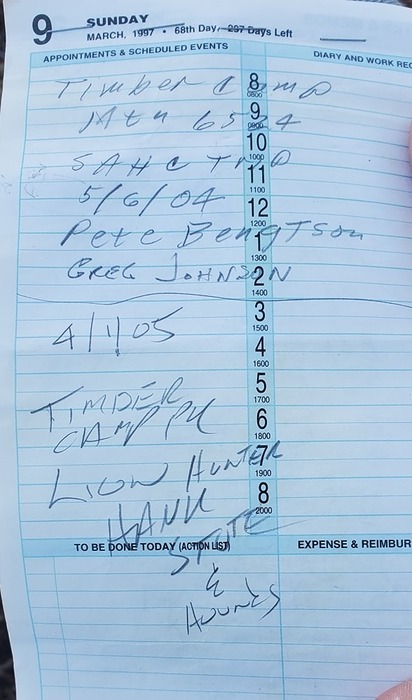 9 SUNDAY
MARCH, 1997 • 68th Day, 297 Days Left
APPOINTMENTS & SCHEDULED EVENTS
DIARY AND WORK REC
8
0800
9
0900
10
1000
11
1100
12
1200
1
1300
2
1400
3
1500
4
1600
5
1700
6
1800
7
1900
8
2000
Timber Camp
Mtn 65 4
SAHC
5/6/04
Pete Bengtson
GREG JOHNSON
4/1/05
TIMBER
CAMP PK
LION HUNTER
HANK
STUTE
&
HOUNDS
TO BE DONE TODAY (ACTION LIST)
EXPENSE & REIMBUR